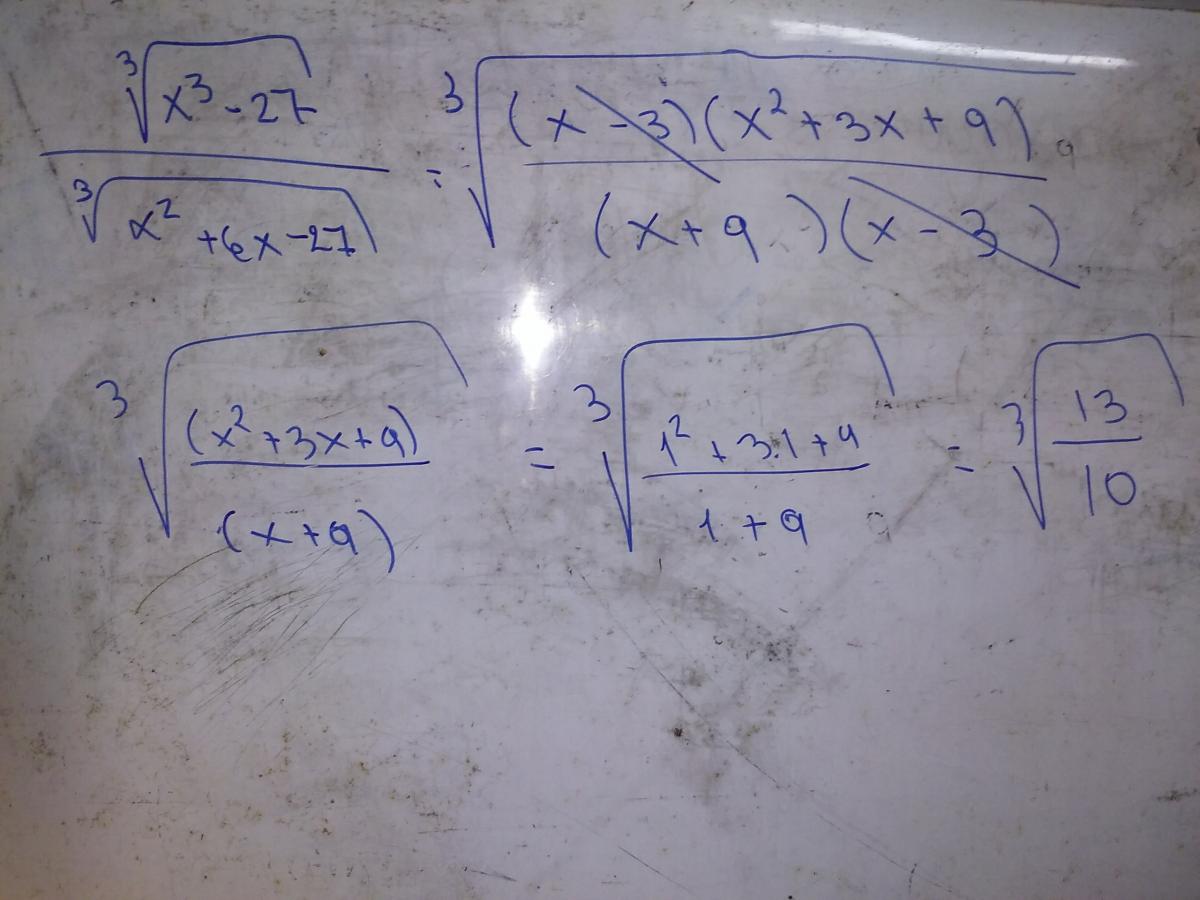 ∛(x³ - 27) / ∛(x² + 6x - 27) = ∛((x - 3)(x² + 3x + 9) / (x + 9)(x - 3))
∛((x² + 3x + 9) / (x + 9)) = ∛((1² + 3.1 + 9) / (1 + 9)) = ∛(13 / 10)